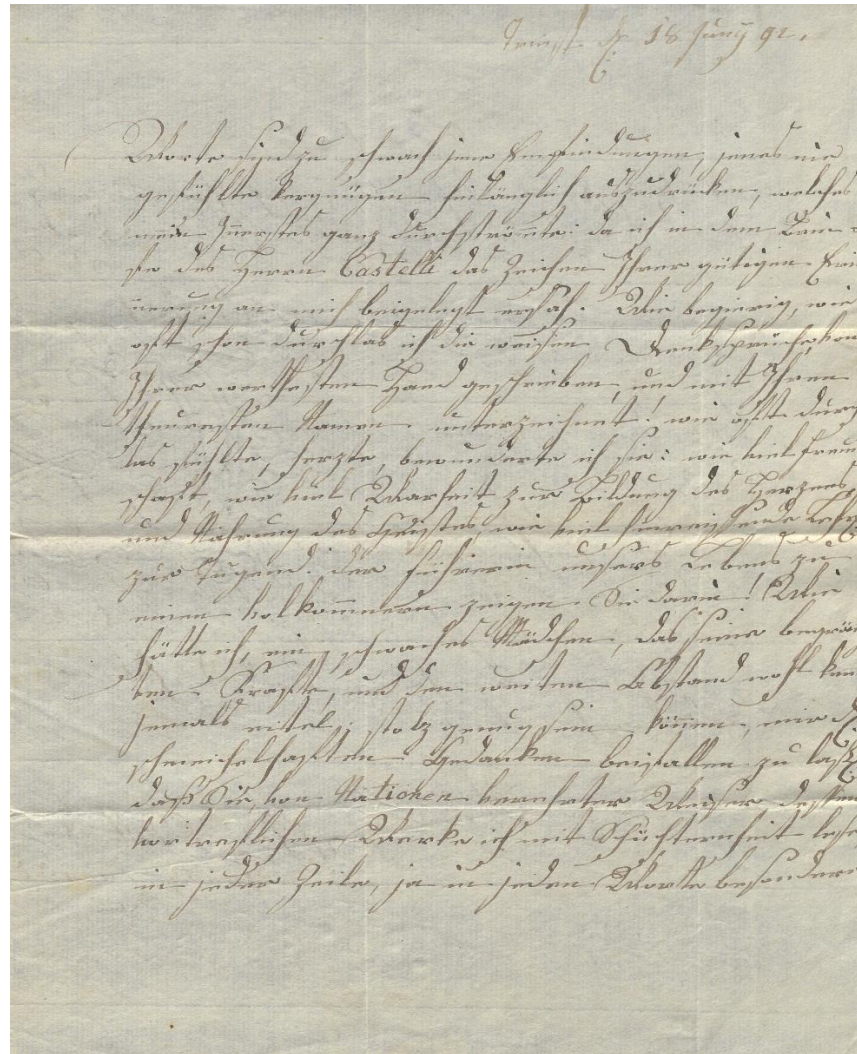 Triest d: 18 Juny 91.
Worte sind zu schwach jene Empfindungen, jenes nie
gefühlte Vergnügen hinlänglich auszudrücken, welches
mein Innerstes ganz durchströmte: da ich in dem Brie-
fe des Herrn Castelli das Zeichen Ihrer gütigen Erin
nerung an mich beigelegt ersah. Wie begierig, wie
oft schon durchlas ich die weisen Denksprüche, von
Ihrer werthesten Hand geschrieben, und mit Ihren
theuresten Namen unterzeichnet! wie oft durch
las fühlte, herzte, bewunderte ich sie: wie viel Freun
schaft, wie viel Warheit zur Bildung des Herzens,
und Nahrung des Geistes, wie viel hinreissende Lehr
zur Tugend: der führerin unsers Lebens zu
einen volkommern zeigen Sie darin! Wie
hätte ich, ein schwaches Mädchen, das seine begrän
ten Krafte, und den weiten Abstand wohl ken
jemals eitel, stolz genug sein können, mir d
schmeichelhaften Gedanken beifallen zu lass
daß Sie, von Nationen verehrter Weiser dessen
vortreflichen Werke ich mit Schüchternheit lese
in jeder Zeile, ja in jeden Worte besondere